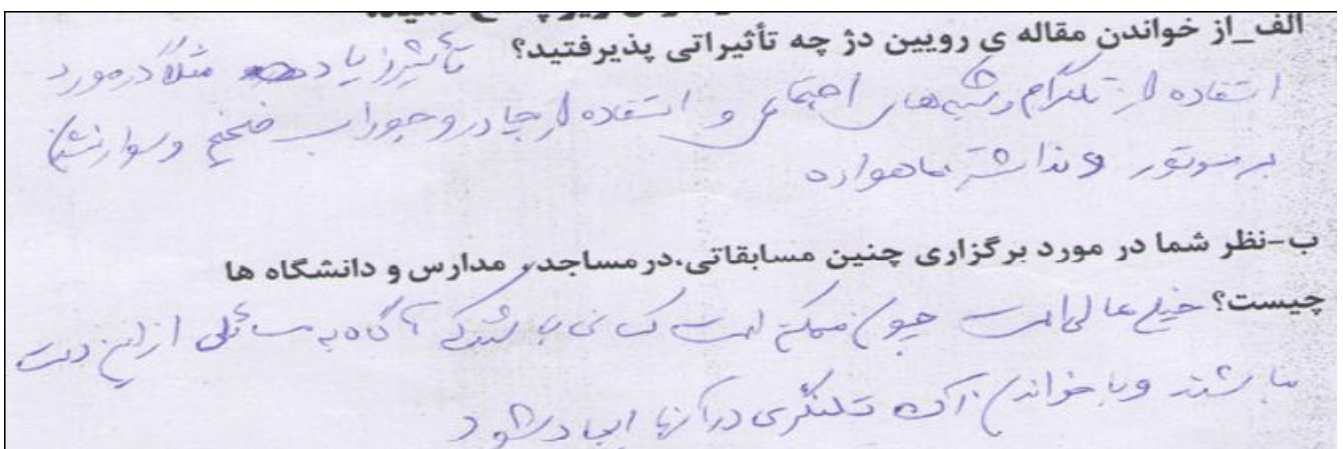 الف_از خواندن مقاله ی رویین دژ چه تأثیراتی پذیرفتید؟ تأثیر زیاد مثلاً در مورد
استفاده از تلگرام و شبکه های اجتماعی و استفاده از چادر و جوراب ضخیم و سوار نشدن
بر موتور و نداشتن ماهواره
ب-نظر شما در مورد برگزاری چنین مسابقاتی،در مساجد، مدارس و دانشگاه ها
چیست؟ خیلی عالی است چون ممکن است کسانی باشند که آگاه به مسائلی از این دست
باشند و با خواندن آن تلنگری در آنها ایجاد شود